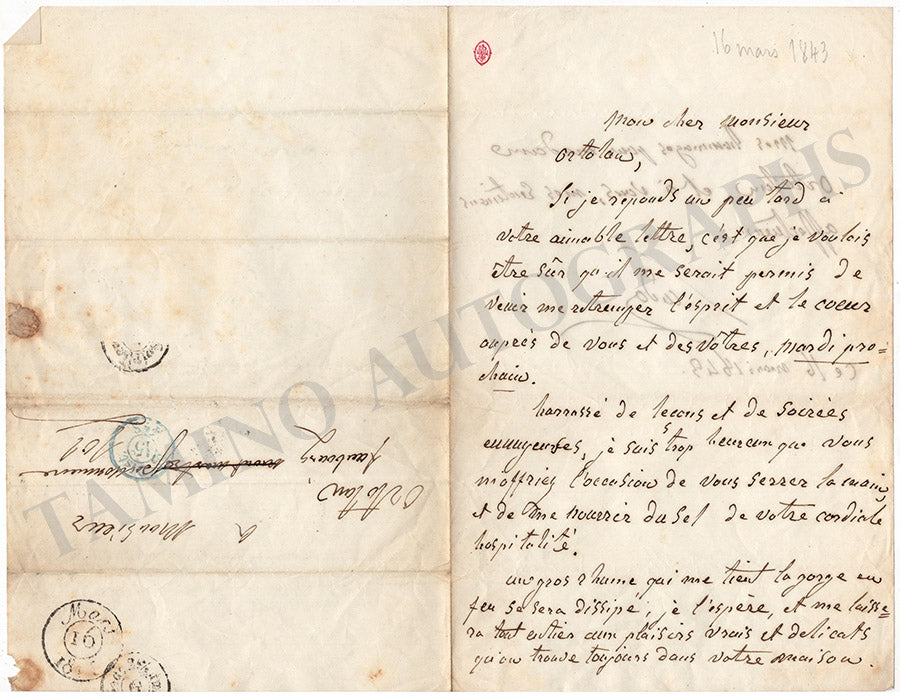 16 mars 1843
mon cher monsieur
ortolan,
Si je reponds un peu tard à
votre aimable lettre, c'est que je voulois
être sûr qu'il me serait permis de
venir me retremper l'esprit et le coeur
auprès de vous et des vôtres, mardi pro-
chain.
harrassé de lecons et de soirées
ennuyeuses, je suis trop heureux que vous
m'offriez l'occasion de vous serrer la main,
et de me nourrir du sel de votre cordiale
hospitalité.
un gros rhume qui me tient la gorge en
feu se sera dissipé, je l'espère, et me laisse-
ra tout entier aux plaisirs vrais et delicats
qu'on trouve toujours dans votre maison.
a Monsieur
Ortolan
faubourg
Mars
16
15
TAMINO AUTOGRAPHS